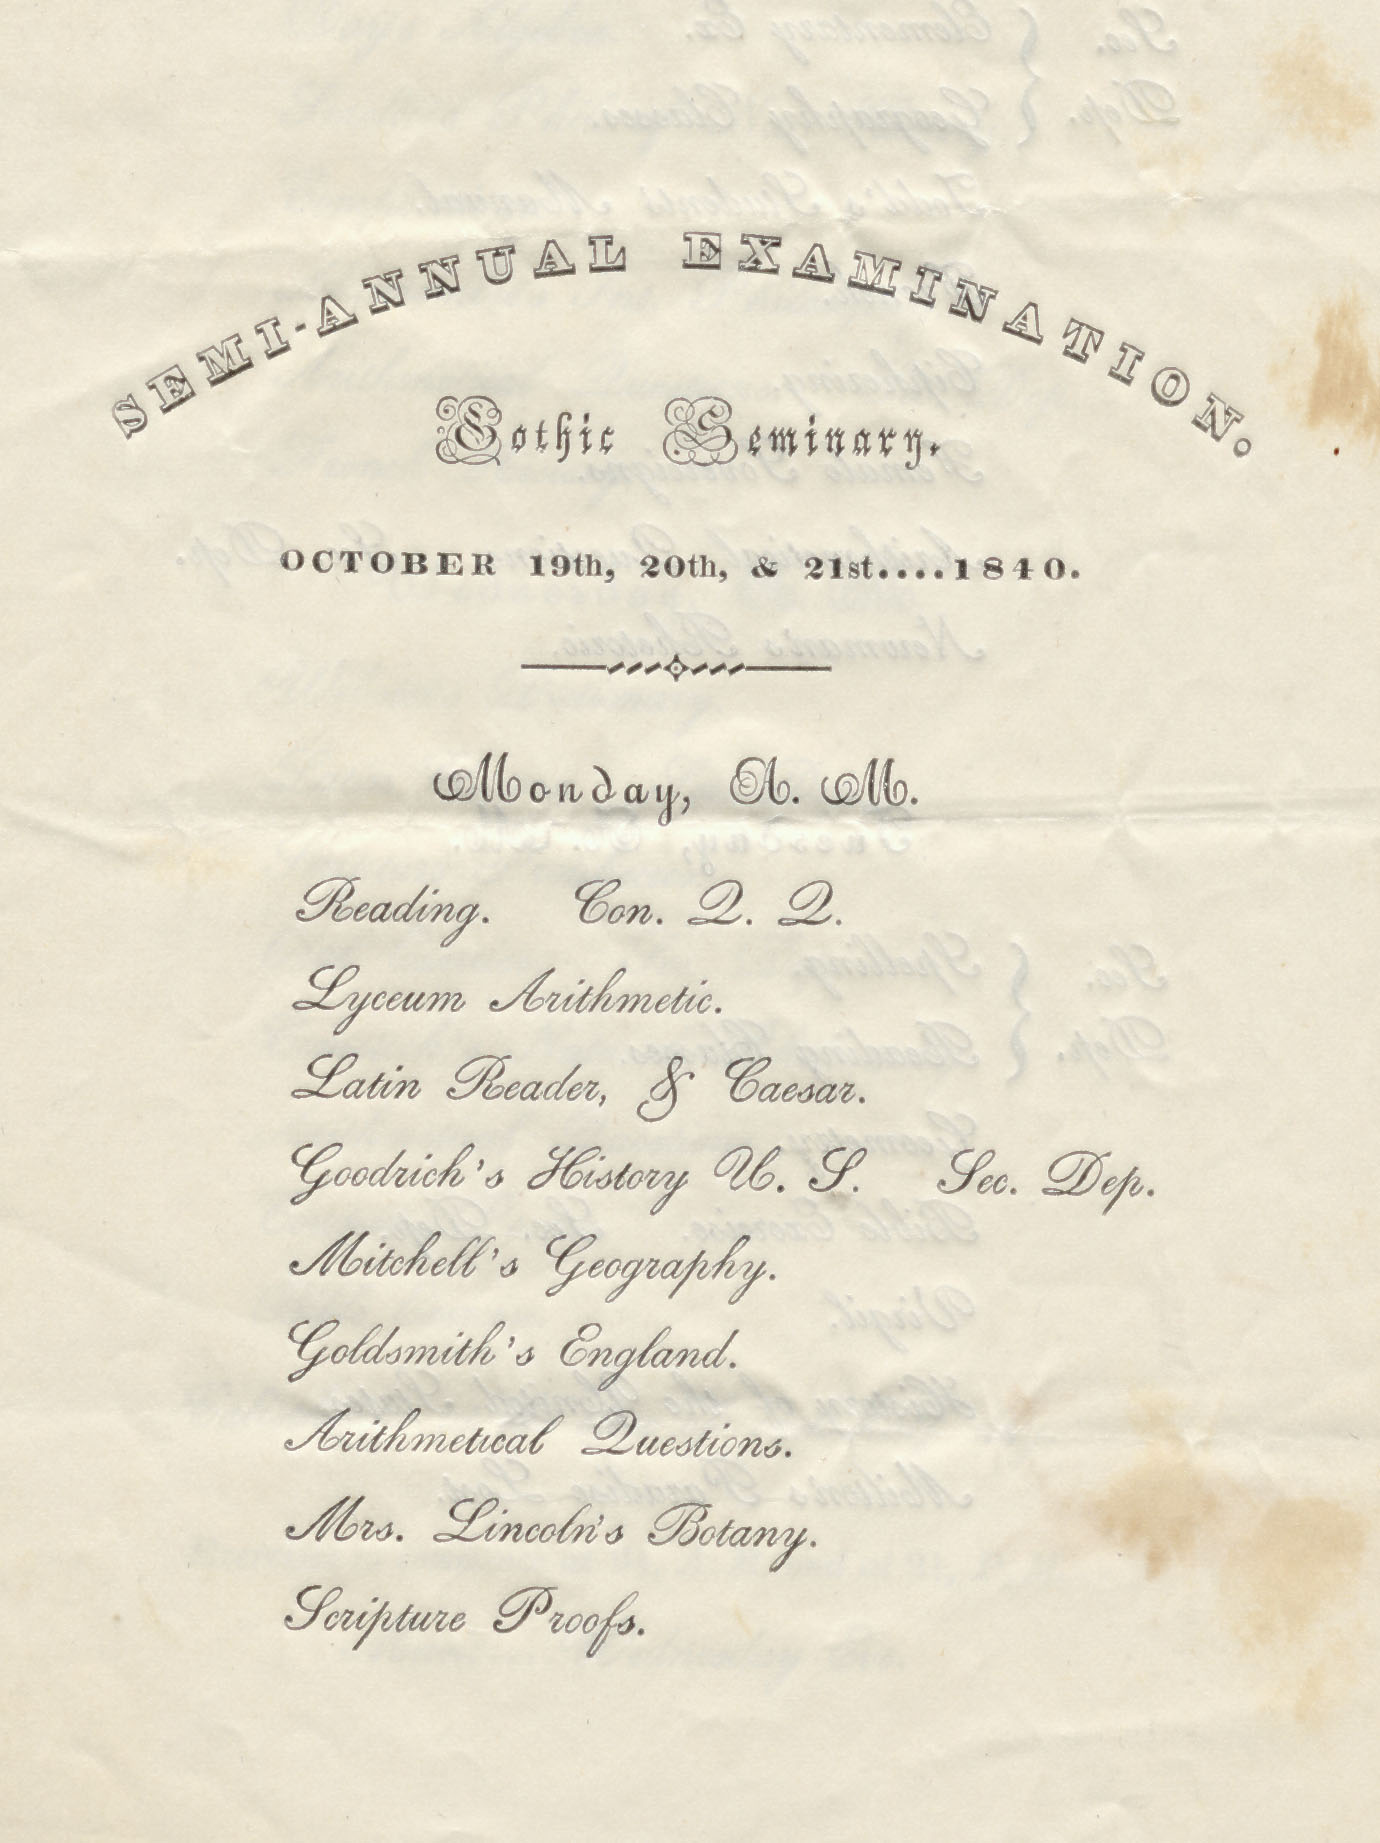 SEMI-ANNUAL EXAMINATION.
Gothic Seminary.
OCTOBER 19th, 20th, & 21st....1840.
Monday, A. M.
Reading. Con. Q. Q.
Lyceum Arithmetic.
Latin Reader, & Caesar.
Goodrich's History U. S. Sec. Dep.
Mitchell's Geography.
Goldsmith's England.
Arithmetical Questions.
Mrs. Lincoln's Botany.
Scripture Proofs.